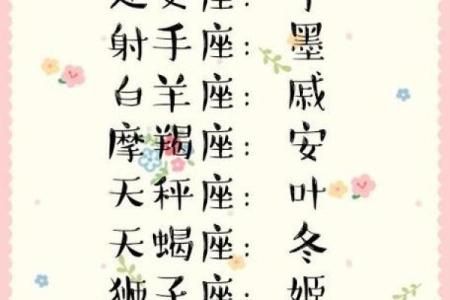 射手座：墨
白羊座：戚
摩羯座：安
天秤座：叶
天蝎座：冬
狮子座：姬